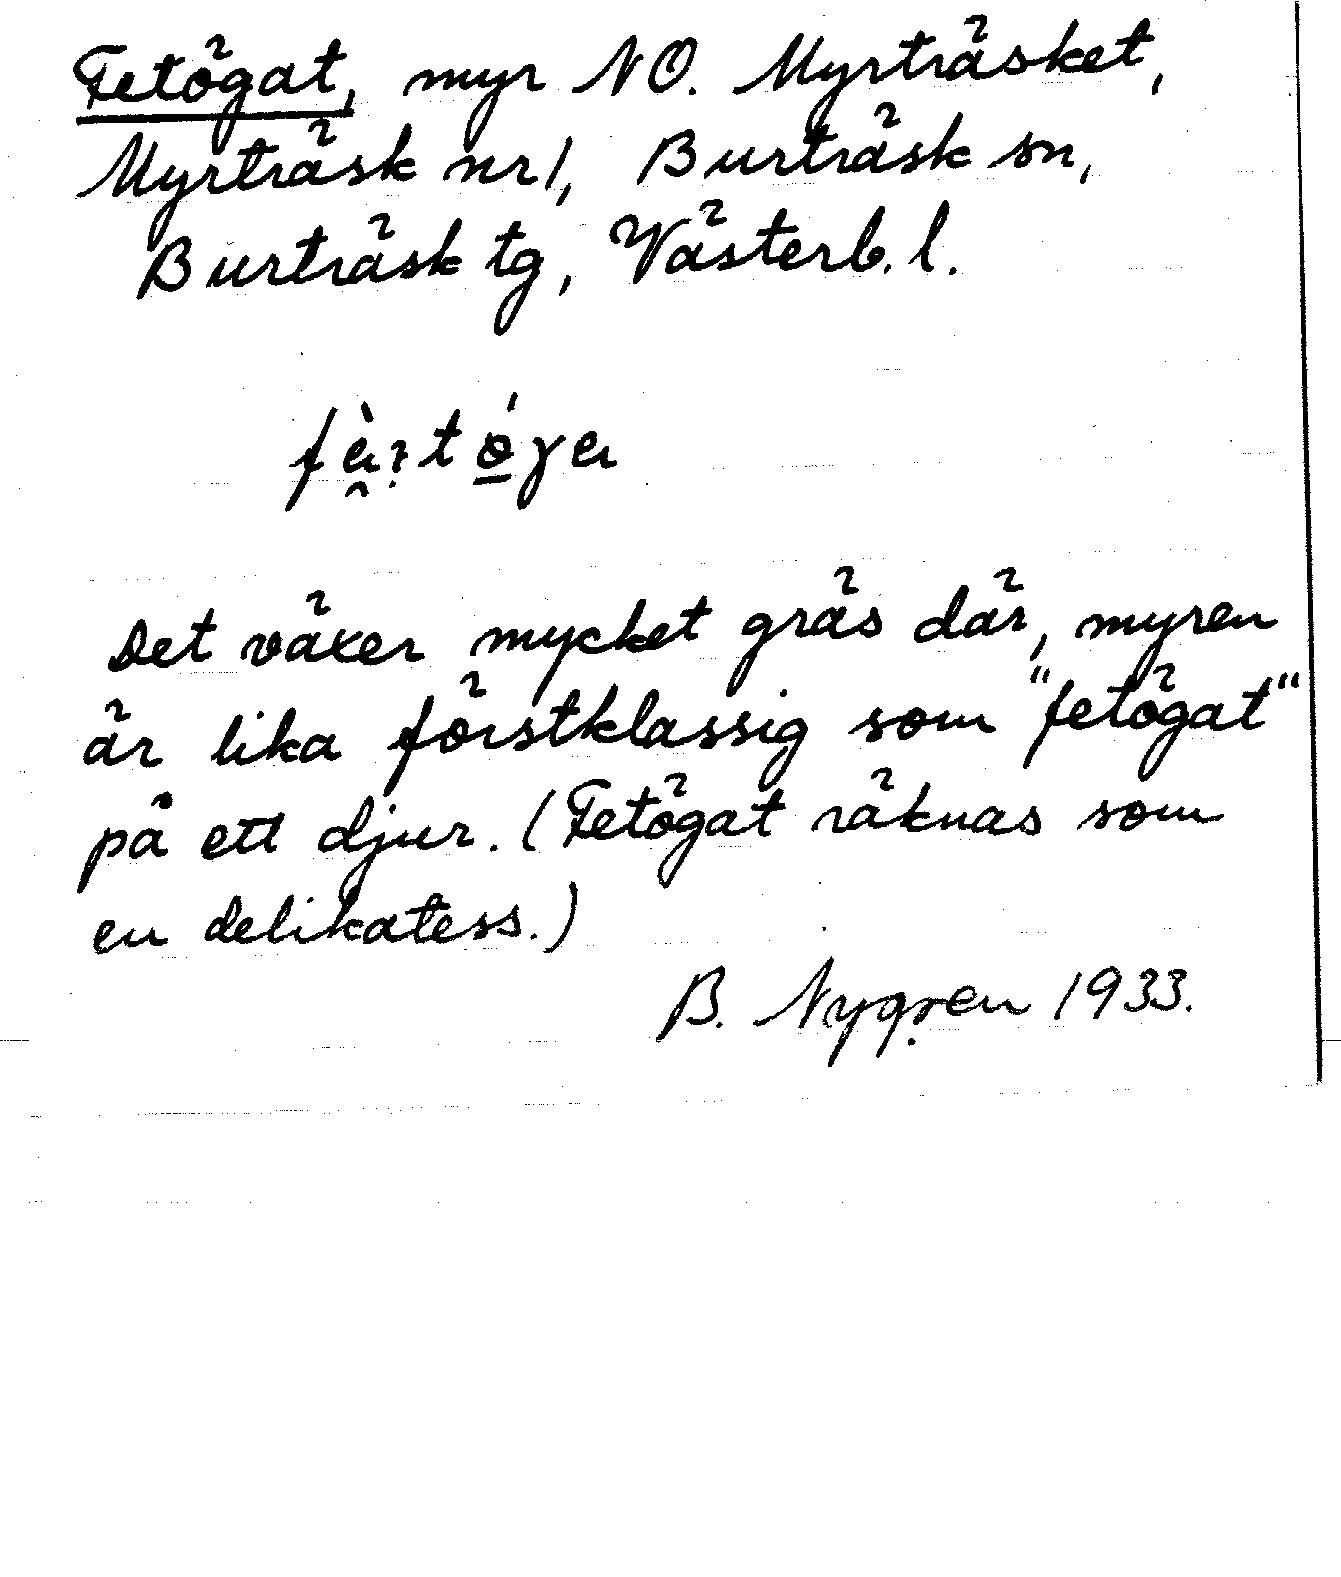 Fetögat, myr NO. Myrträsket,
Myrträsk nr 1, Burträsk sn,
Burträsk tg, Västerb. l.
Det växer mycket gräs där, myren
är lika förstklassig som "fetögat"
på ett djur. (Fetögat räknas som
en delikatess.)
B. Nygren 1933.